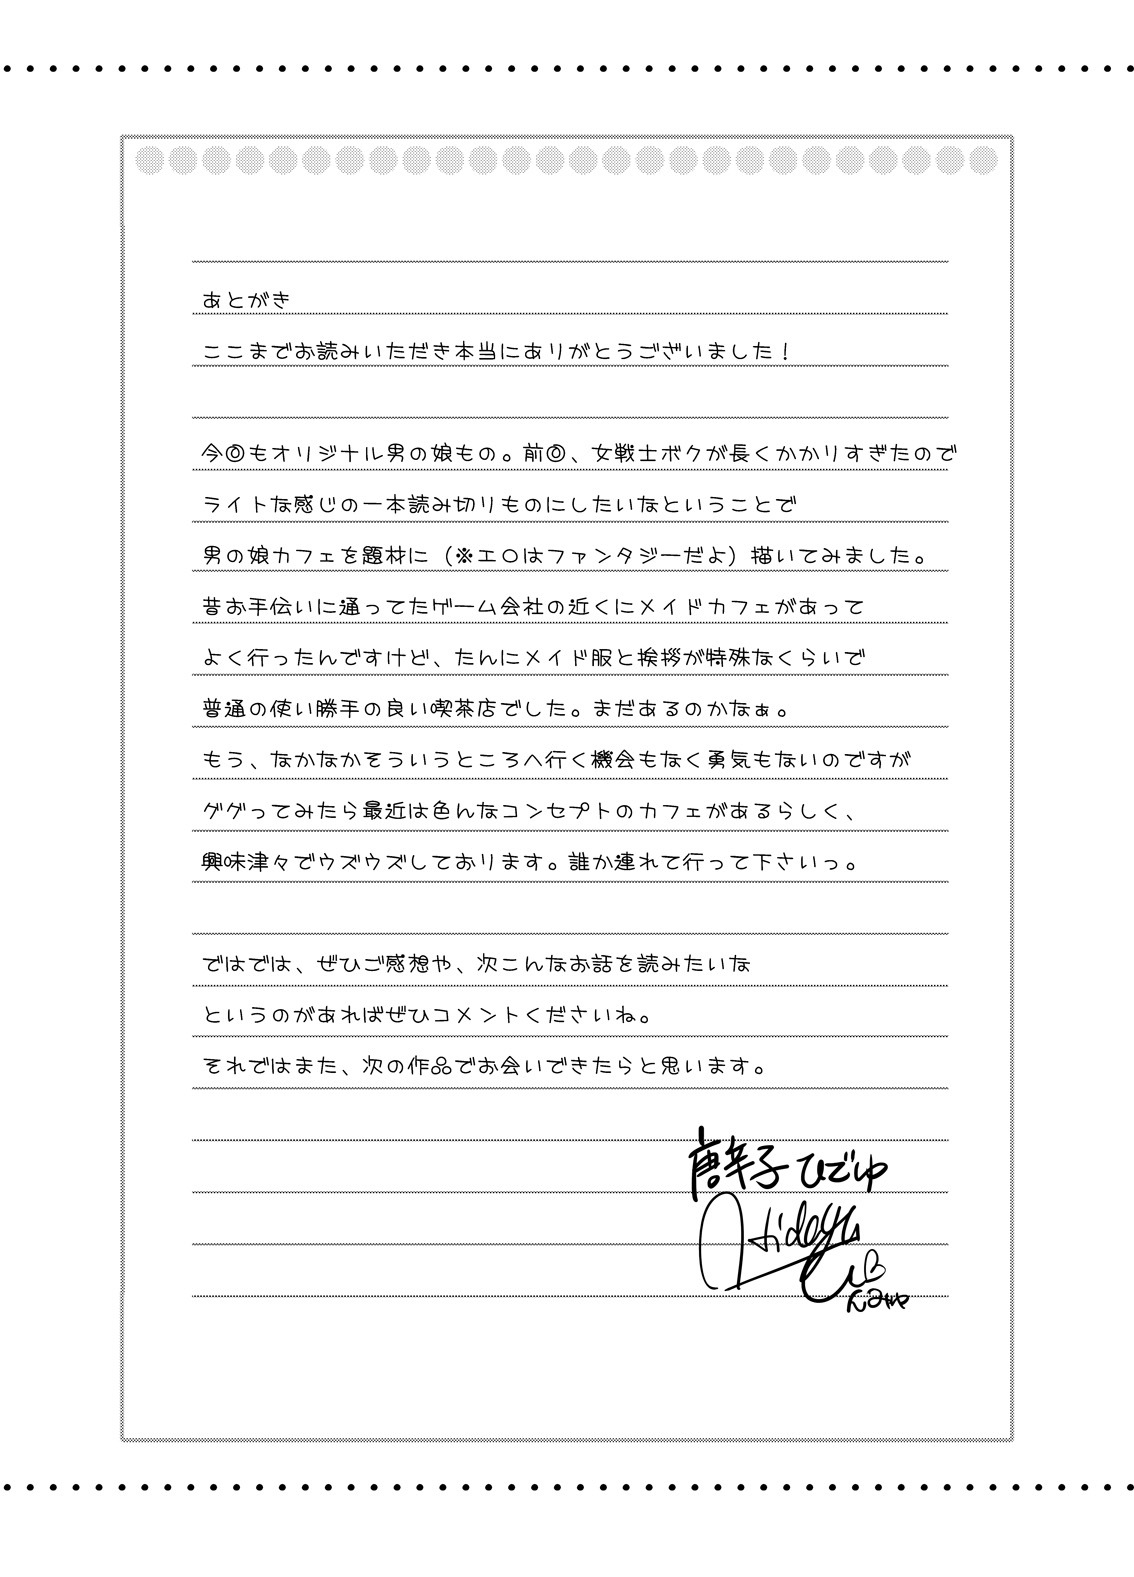 あとがき
ここまでお読みいただき本当にありがとうございました！
今回もオリジナル男の娘もの。前回、女戦士ボクが長くかかりすぎたので
ライトな感じの一本読み切りものにしたいなということで
男の娘カフェを題材に（※エロはファンタジーだよ）描いてみました。
昔お手伝いに通ってたゲーム会社の近くにメイドカフェがあって
よく行ったんですけど、たんにメイド服と挨拶が特殊なくらいで
普通の使い勝手の良い喫茶店でした。まだあるのかなぁ。
もう、なかなかそういうところへ行く機会もなく勇気もないのですが
ググってみたら最近は色んなコンセプトのカフェがあるらしく、
興味津々でウズウズしております。誰か連れて行って下さいっ。
ではでは、ぜひご感想や、次こんなお話を読みたいな
というのがあればぜひコメントくださいね。
それではまた、次の作品でお会いできたらと思います。
唐辛子ひでゆ
Hideyu